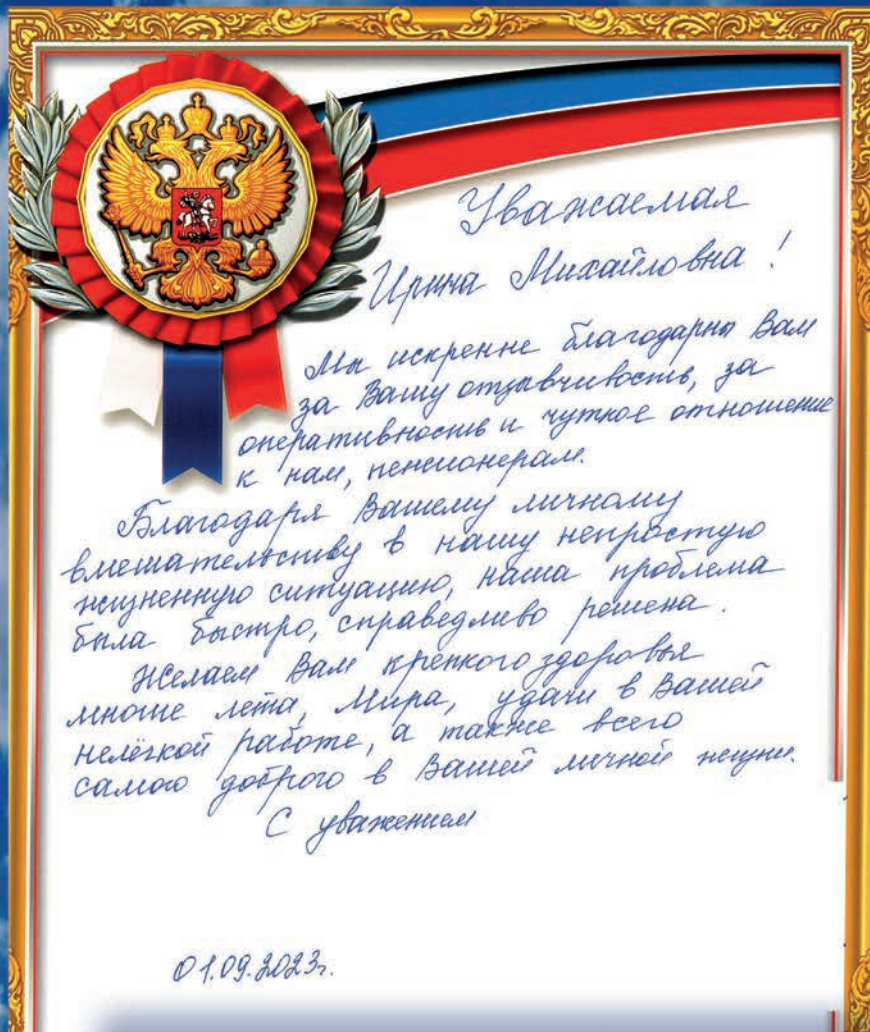 Уважаемая
Ирина Михайловна!
Мы искренне благодарны Вам
за Вашу отзывчивость, за
оперативность и чуткое отношение
к нам, пенсионерам.
Благодаря Вашему личному
вмешательству в нашу непростую
жизненную ситуацию, наша проблема
была быстро, справедливо решена.
Желаем Вам крепкого здоровья
многие лета, Мира, удачи в Вашей
нелёгкой работе, а также всего
самого доброго в Вашей личной жизни.
С уважением
01.09.2023г.